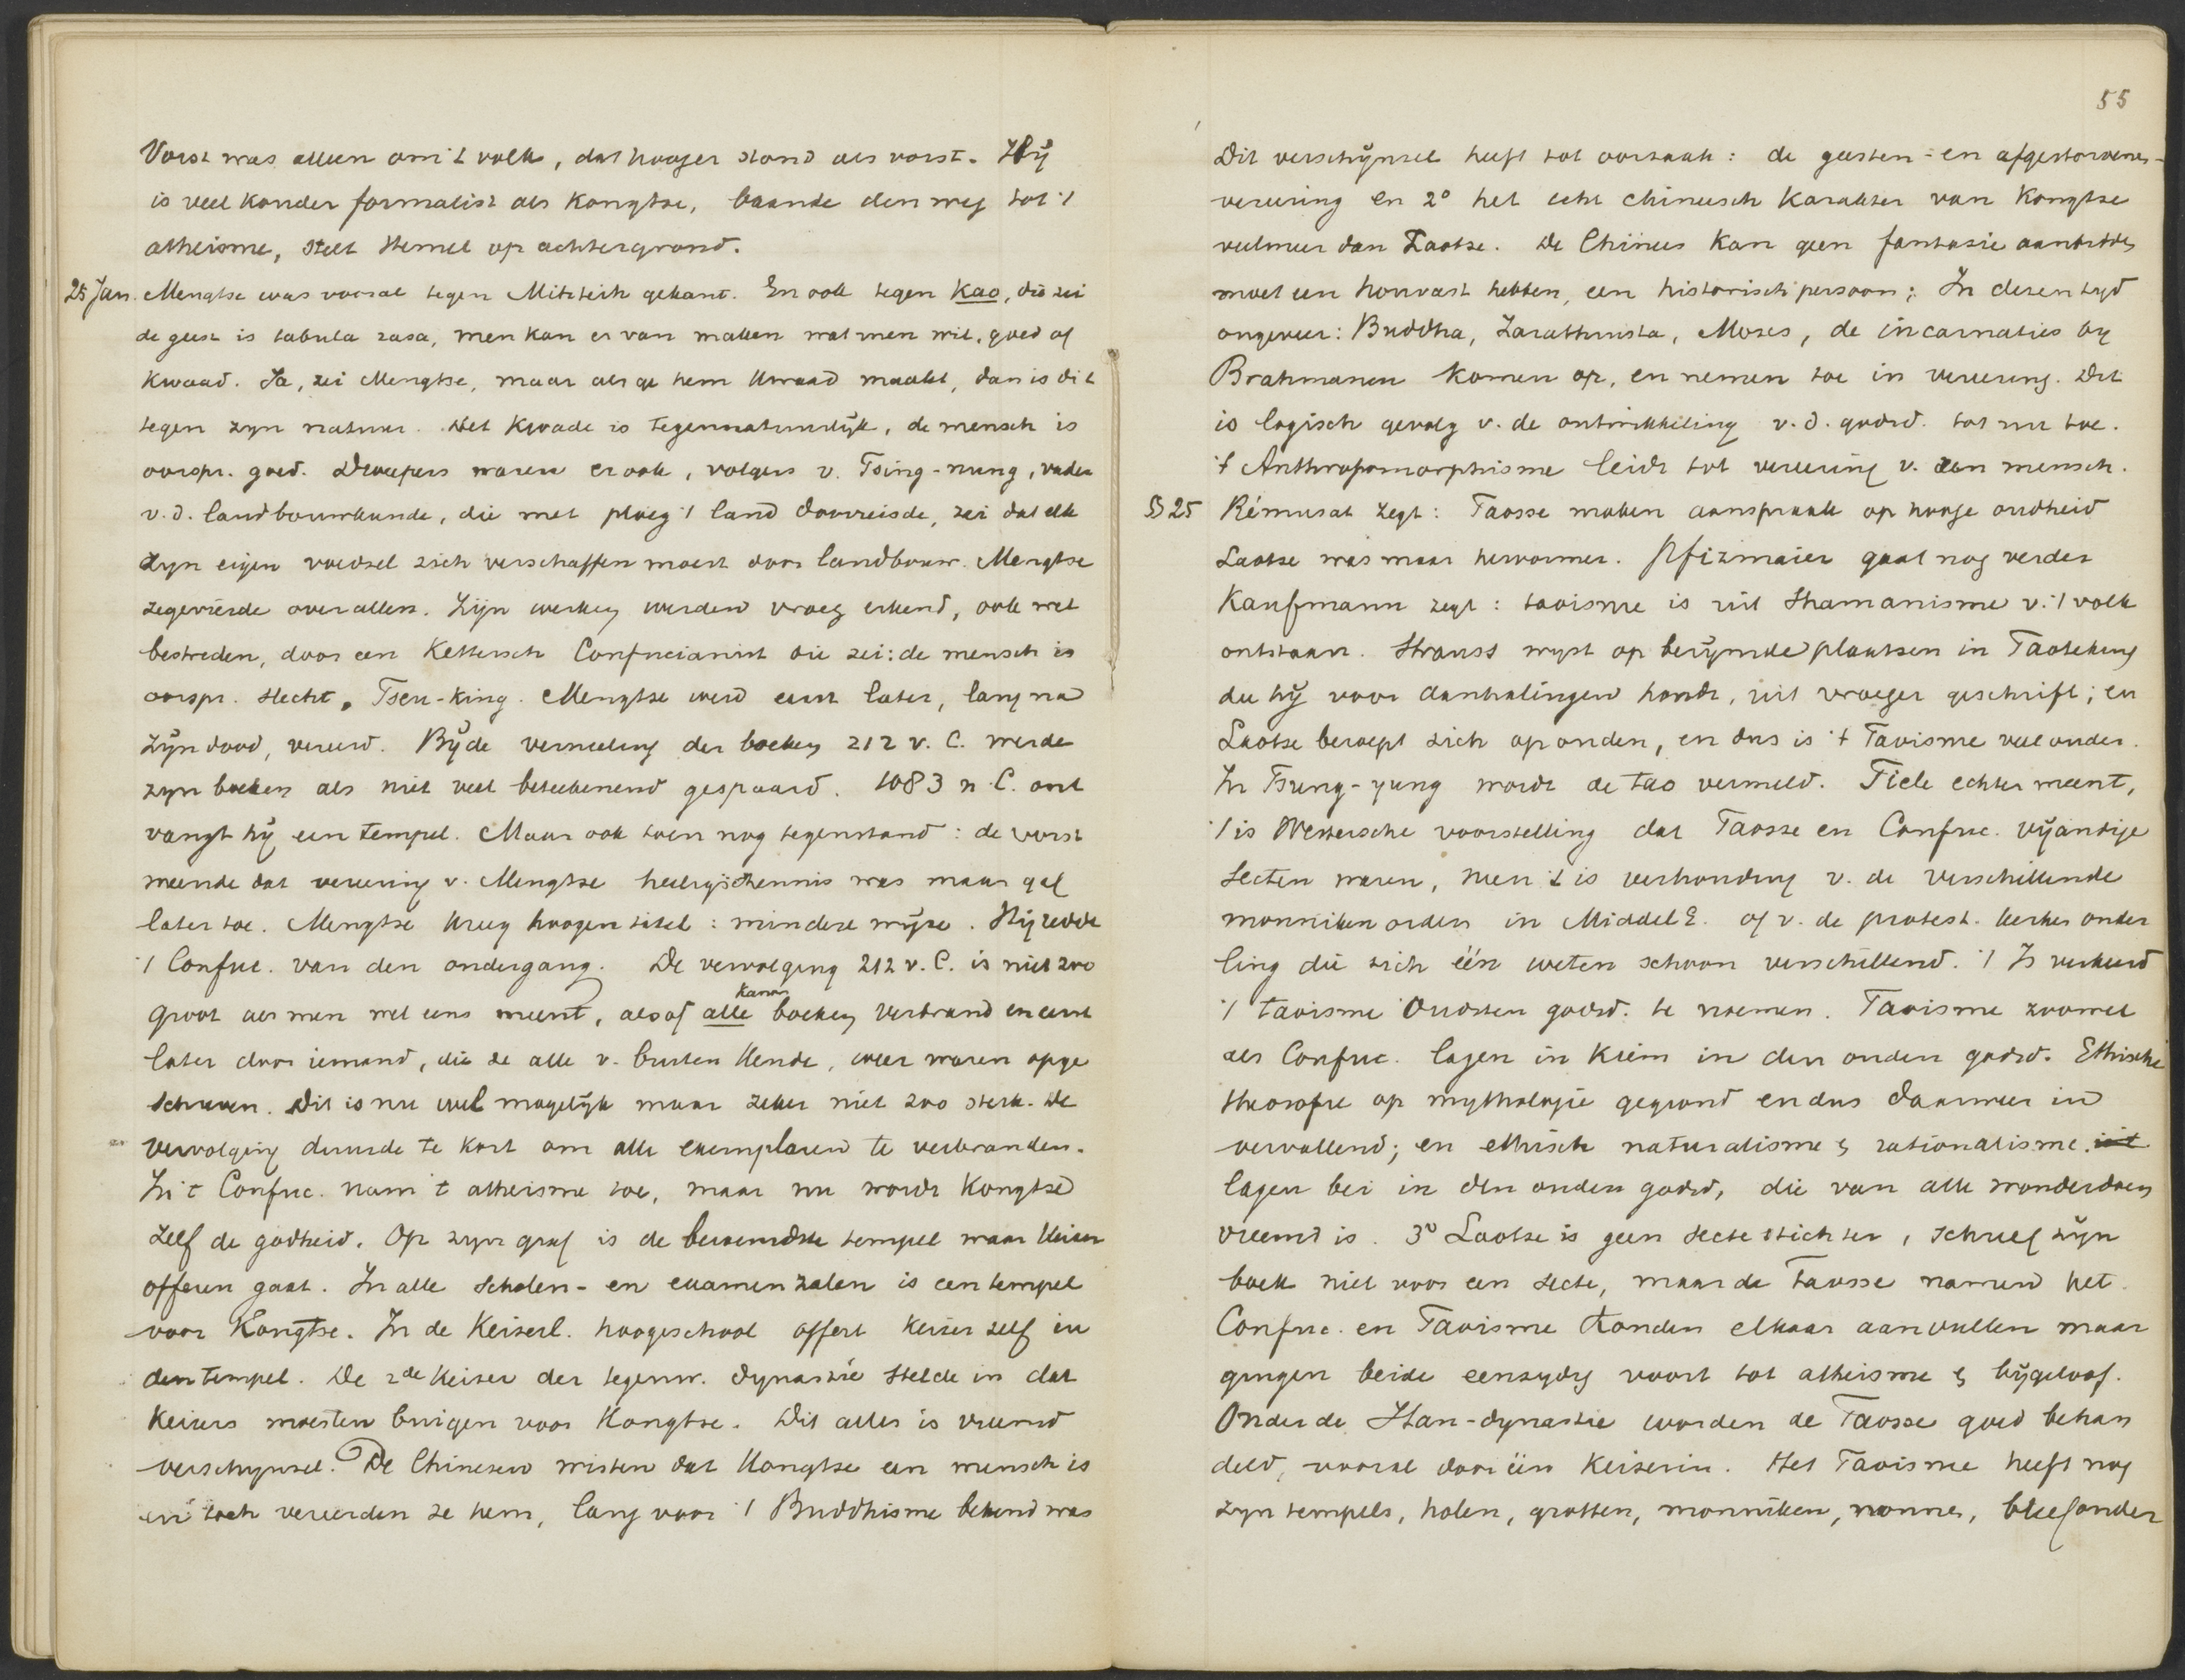 Vorst was alleen om 't volk, dat hooger stond als vorst. Hij
is veel konder formalist als Kongtse, baande den weg tot 't
atheisme, stelt Hemel op achtergrond.
25 Jan. Mengtse was vooral tegen Mitsteih gekant. En ook tegen Kao, die zei
de geest is tabula rasa, men kan er van maken wat men wil, goed of
kwaad. Ja, zei Mengtse, maar als ge hem kwaad maakt, dan is dit
tegen zyn natuur. Het kwade is tegennatuurlijk, de mensch is
oorspr. goed. Dweepers waren er ook, volgers v. Tsing-nung, vader
v.d. landbouwkunde, die met ploeg 't land doorreisde, zei dat elk
zyn eigen voedsel zich verschaffen moest door landbouw. Mengtse
zegevierde over allen. Zijn werken werden vroeg erkend, ook wel
bestreden, door een kettersch Confucianist die zei: de mensch is
oorspr. slecht. Tseu-king. Mengtse werd eerst later, lang na
zijn dood, vereerd. Bij de vernieling der boeken 212 v. C. werde
zyn boeken als niet veel beteekenend gespaard. 1083 n. C. ont
vangt hij een tempel. Maar ook toen nog tegenstand: de vorst
meende dat vereering v. Mengtse heiligschennis was maar gaf
later toe. Mengtse kreeg hoogen titel: mindere wijze. Hij redde
't Confuc. van den ondergang. De vervolging 212 v. C. is niet zoo
groot als men wel eens meent, alsof alle kanon boeken verbrand en eerst
later door iemand, die ze alle v. buiten kende, weer waren opge
schreven. Dit is nu wel mogelijk maar zeker niet zoo sterk. De
vervolging duurde te kort om alle exemplaren te verbranden.
In 't Confuc. nam 't atheisme toe, maar nu wordt Kongtse
zelf de godheid. Op zyn graf is de beroemdste tempel waar keizer
offeren gaat. In alle scholen- en examenzalen is een tempel
voor Kongtse. In de Keizerl. hoogeschool offert keizer zelf in
den tempel. De 2de keizer der tegenw. dynastie stelde in dat
keizers moesten buigen voor Kongtse. Dit alles is vreemd
verschynsel. De Chineezen wisten dat Kongtse een mensch is
en toch vereerden ze hem, lang voor 't Buddhisme bekend was
55
Dit verschijnsel heeft tot oorzaak: de geesten- en afgestorvenen-
vereering en 2° het echt chineesch karakter van Kongtse
veelmeer dan Laotse. De Chinees kan geen fantasie aanbidden
moet een houvast hebben, een historisch persoon; In dezen tyd
ongeveer: Buddha, Zarathustra, Moses, de incarnaties by
Brahmanen komen op, en nemen toe in vereering. Dit
is logisch gevolg v. de ontwikkeling v.d. godsd. tot nu toe.
't Anthropomorphisme leidt tot vereering v. een mensch.
§ 25 Rémusat zegt: Taosse maken aanspraak op hooge oudheid
Laotse was maar hervormer. Pfizmaier gaat nog verder
Kaufmann zegt: taoisme is uit Shamanisme v. 't volk
ontstaan. Strauss wyst op berijmde plaatsen in Taoteking
die hij voor aanhalingen houdt, uit vroeger geschrift; en
Laotse beroept zich op ouden, en dus is 't Taoisme veel ouder.
In Tsung-yung wordt de tao vermeld. Tiele echter meent,
't is Westersche voorstelling dat Taosse en Confuc. vijandige
secten waren, neen 't is verhouding v. de verschillende
monniken orden in Middel E. of v. de protest. kerken onder
ling die zich één weten schoon verschillend. 't Is verkeerd
't taoisme oudsten godsd. te noemen. Taoisme zoowel
als Confuc. lagen in kiem in den ouden godsd. Ethische
theosofie op mythologie gegrond en dus daarmee in
vervallend; en ethisch naturalisme & rationalisme.
lagen bei in den ouden godsd, die van alle wonderdoen
vreemd is. 3° Laotse is geen secte stichter, schreef zijn
boek niet voor een secte, maar de Taosse namen het.
Confuc. en Taoisme konden elkaar aanvullen maar
gingen beide eenzydig voort tot atheisme & bijgeloof.
Onder de Han-dynastie worden de Taosse goed behan
deld, vooral door één Keizerin. Het Taoisme heeft nog
zyn tempels, holen, grotten, monniken, nonnen, bleef onder